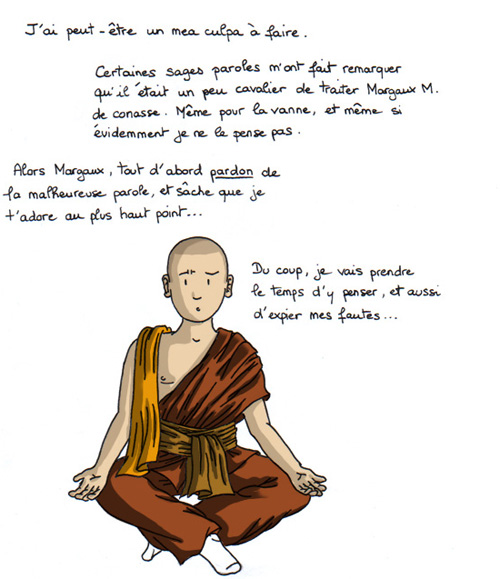 J'ai peut-être un mea culpa à faire.
Certaines sages paroles m'ont fait remarquer
qu'il était un peu cavalier de traiter Margaux M.
de conasse. Même pour la vanne, et même si
évidemment je ne le pense pas.
Alors Margaux, tout d'abord pardon de
la malheureuse parole, et sâche que je
t'adore au plus haut point...
Du coup, je vais prendre
le temps d'y penser, et aussi
d'expier mes fautes...